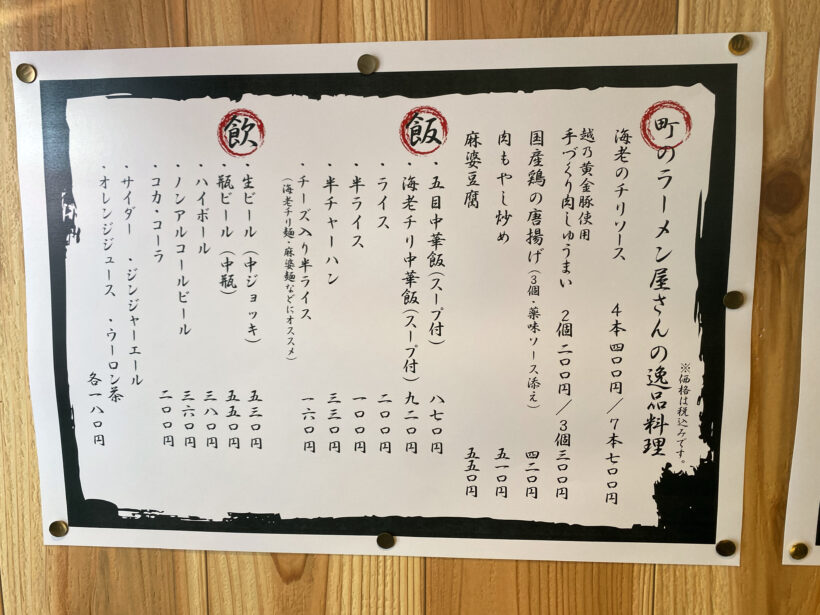 町のラーメン屋さんの逸品料理
※価格は税込みです。
海老のチリソース 4本 四〇〇円／7本 七〇〇円
越乃黄金豚使用
手づくり肉しゅうまい 2個 二〇〇円／3個 三〇〇円
国産鶏の唐揚げ(3個・薬味ソース添え) 四二〇円
肉もやし炒め 五一〇円
麻婆豆腐 五五〇円
飯
・五目中華飯(スープ付) 八七〇円
・海老チリ中華飯(スープ付) 九二〇円
・ライス 二〇〇円
・半ライス 一〇〇円
・半チャーハン 三三〇円
・チーズ入り半ライス 一六〇円
(海老チリ麺・麻婆麺などにオススメ)
飲
・生ビール(中ジョッキ) 五三〇円
・瓶ビール(中瓶) 五五〇円
・ハイボール 三八〇円
・ノンアルコールビール 三六〇円
・コカ・コーラ 二〇〇円
・サイダー ・ジンジャーエール
・オレンジジュース ・ウーロン茶
各一八〇円